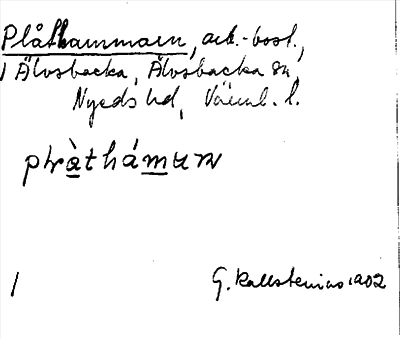 Plåthammarn, ark.-bost.,
i Älvsbacka, Älvsbacka sn,
Nyeds hd, Värml. l.
plràthámurn
G. Kallstenius 1902